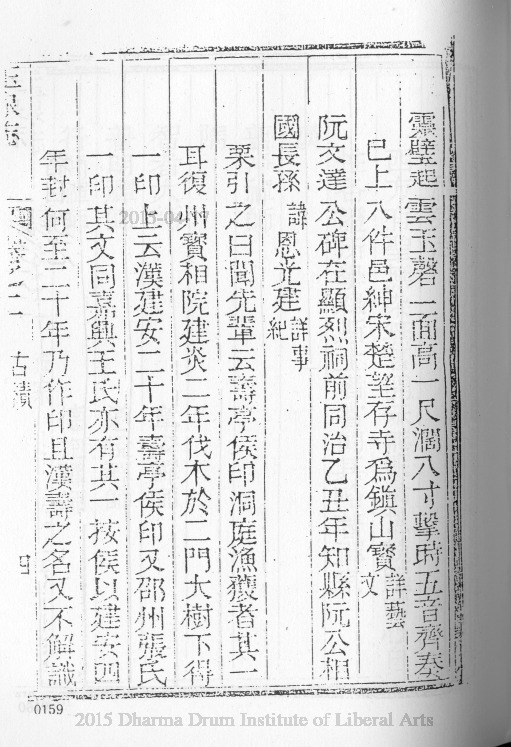 靈璧起雲玉磬一面高一尺濶八寸擊時五音齊奏
已上八件邑紳宋楚望存寺爲鎮山寶詳藝文
阮文達公碑在顯烈祠前同治乙丑年知縣阮公相
國長孫諱恩光建詳事紀
栗引之曰聞先輩云壽亭侯印洞庭漁獲者其一
耳復州寶相院建炎二年伐木於二門大樹下得
一印上云漢建安二十年壽亭侯印又邵州張氏
一印其文同嘉興王氏亦有其一按侯以建安四
年封何至二十年乃作印且漢壽之名又不解識
玉泉志
卷之二 古蹟
四
2015-04-17
0159
2015 Dharma Drum Institute of Liberal Arts